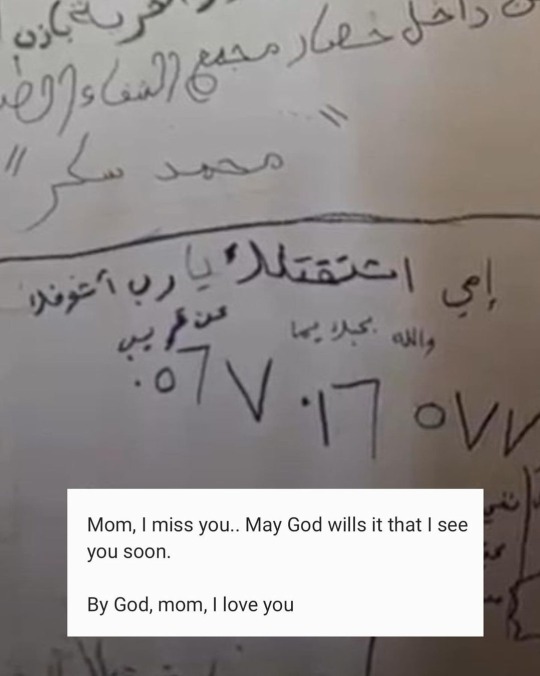 الحرية بإذن
داخل حصار مجمع الشفاء
" محمد سكر "
إمي اشتقتلك يا رب أشوفك
عن قريب
والله بحبك يما
٠٥٦٧ ٠١٦ ٥٧٧
Mom, I miss you.. May God wills it that I see
you soon.
By God, mom, I love you